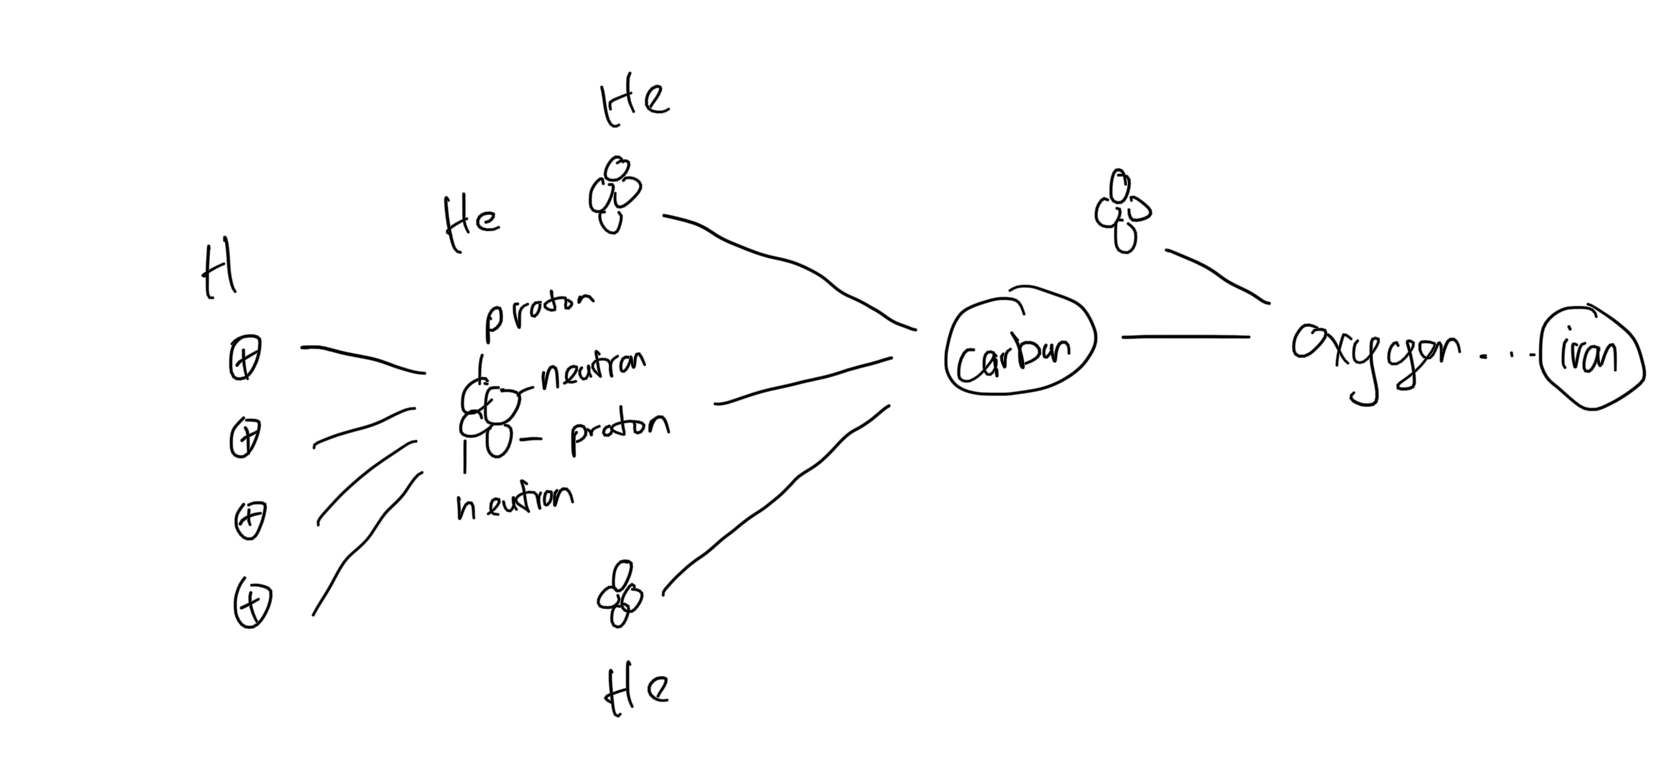 He
He
H
proton
neutron
proton
neutron
carbon
oxygen...
iron
He